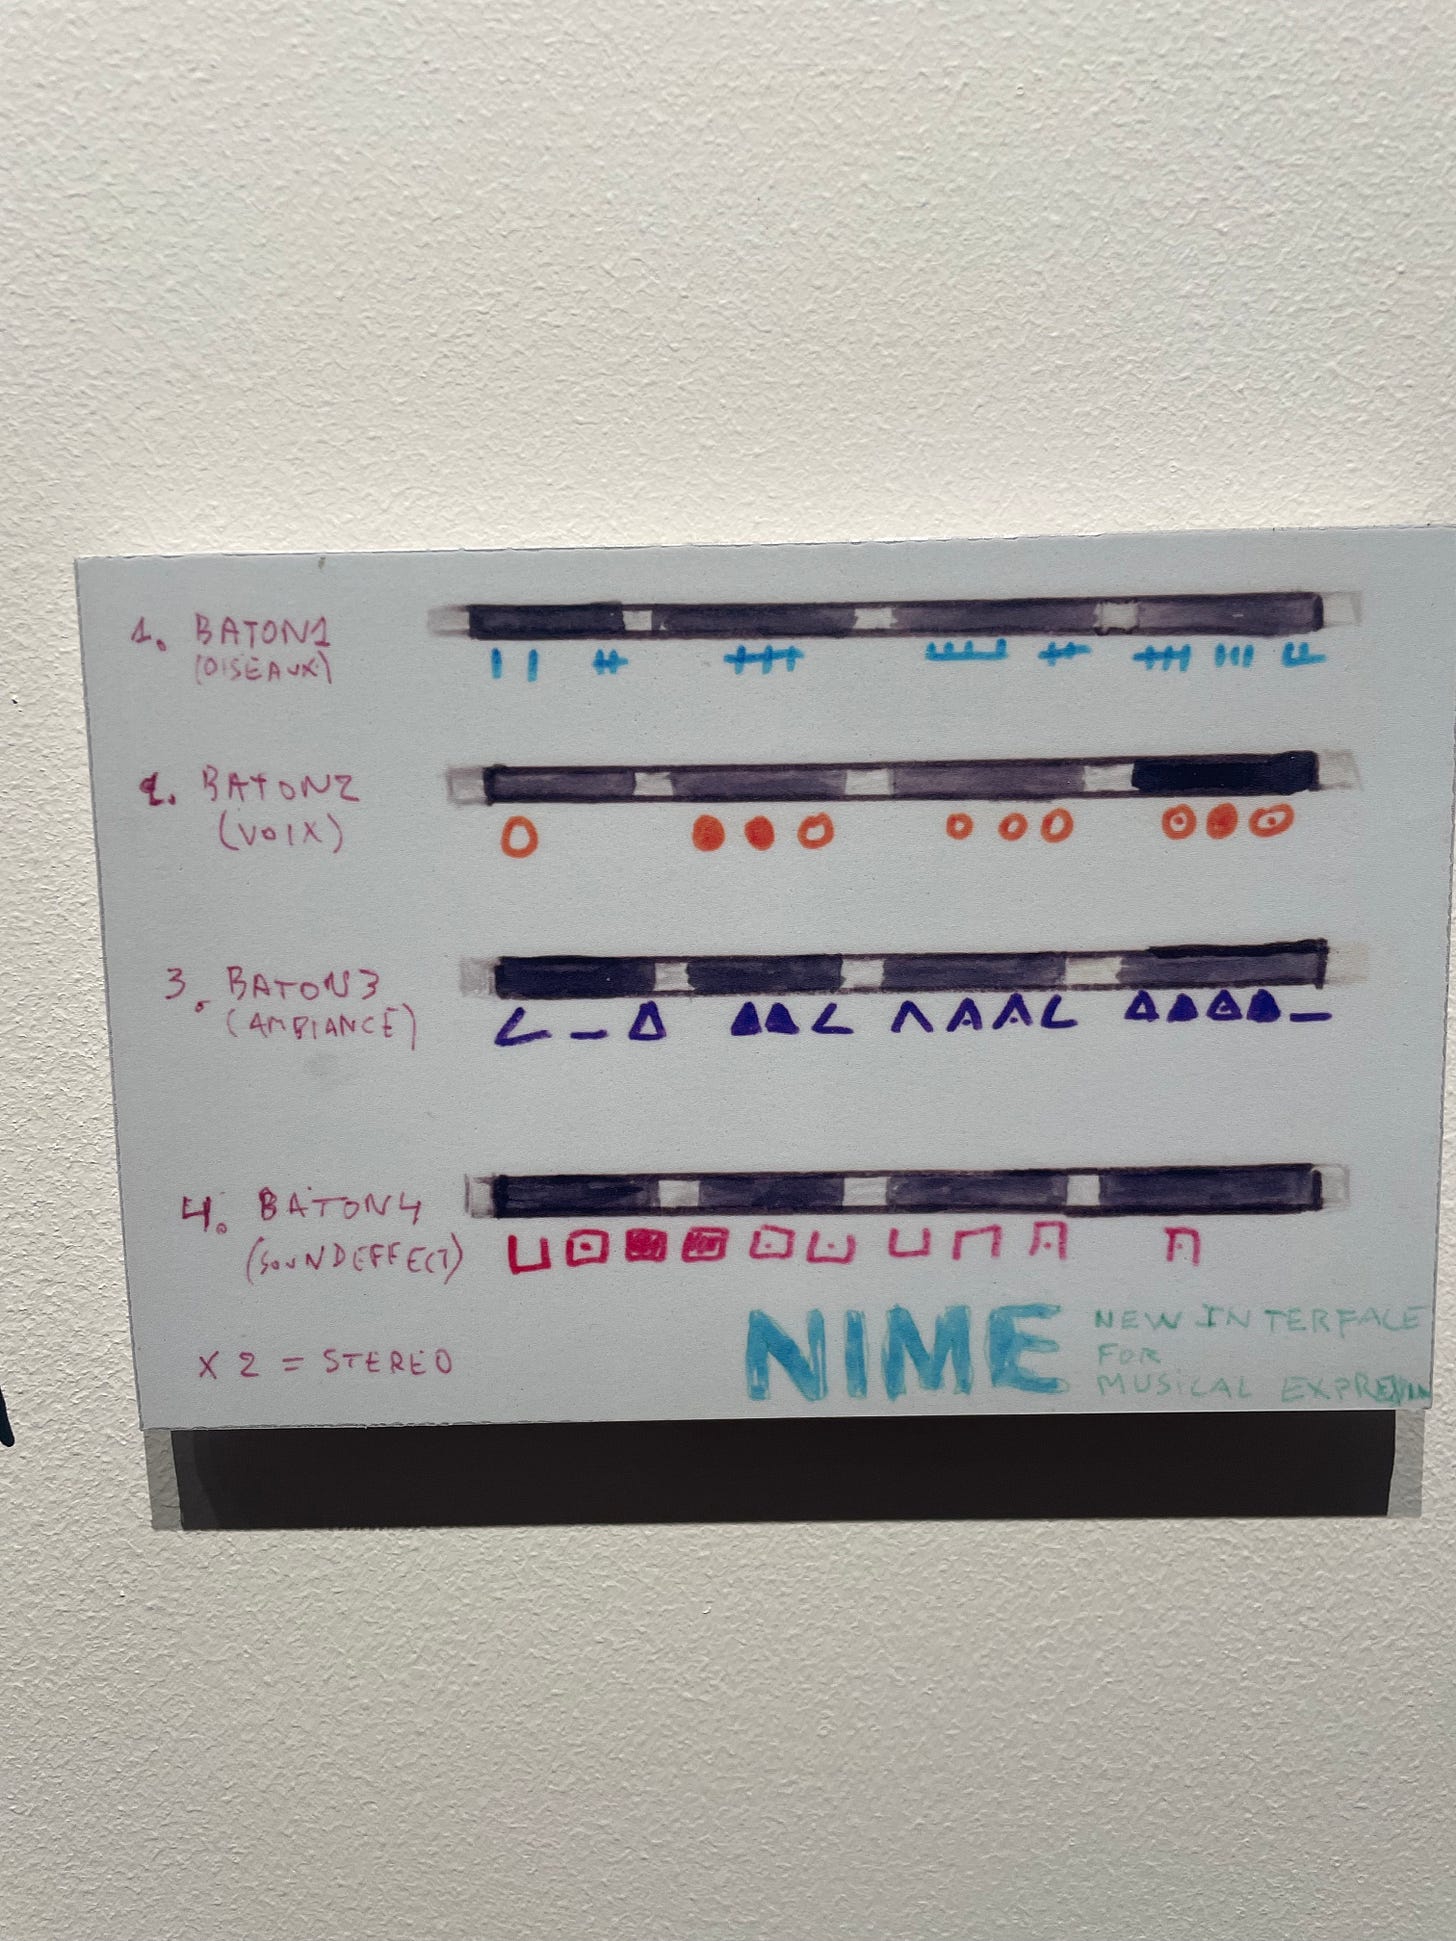 1. BATON1
(OISEAUX)
2. BATON2
(VOIX)
3. BATON3
(AMBIANCE)
4. BATON4
(SOUNDEFFECT)
X 2 = STEREO
NIME
NEW INTERFACE
FOR
MUSICAL